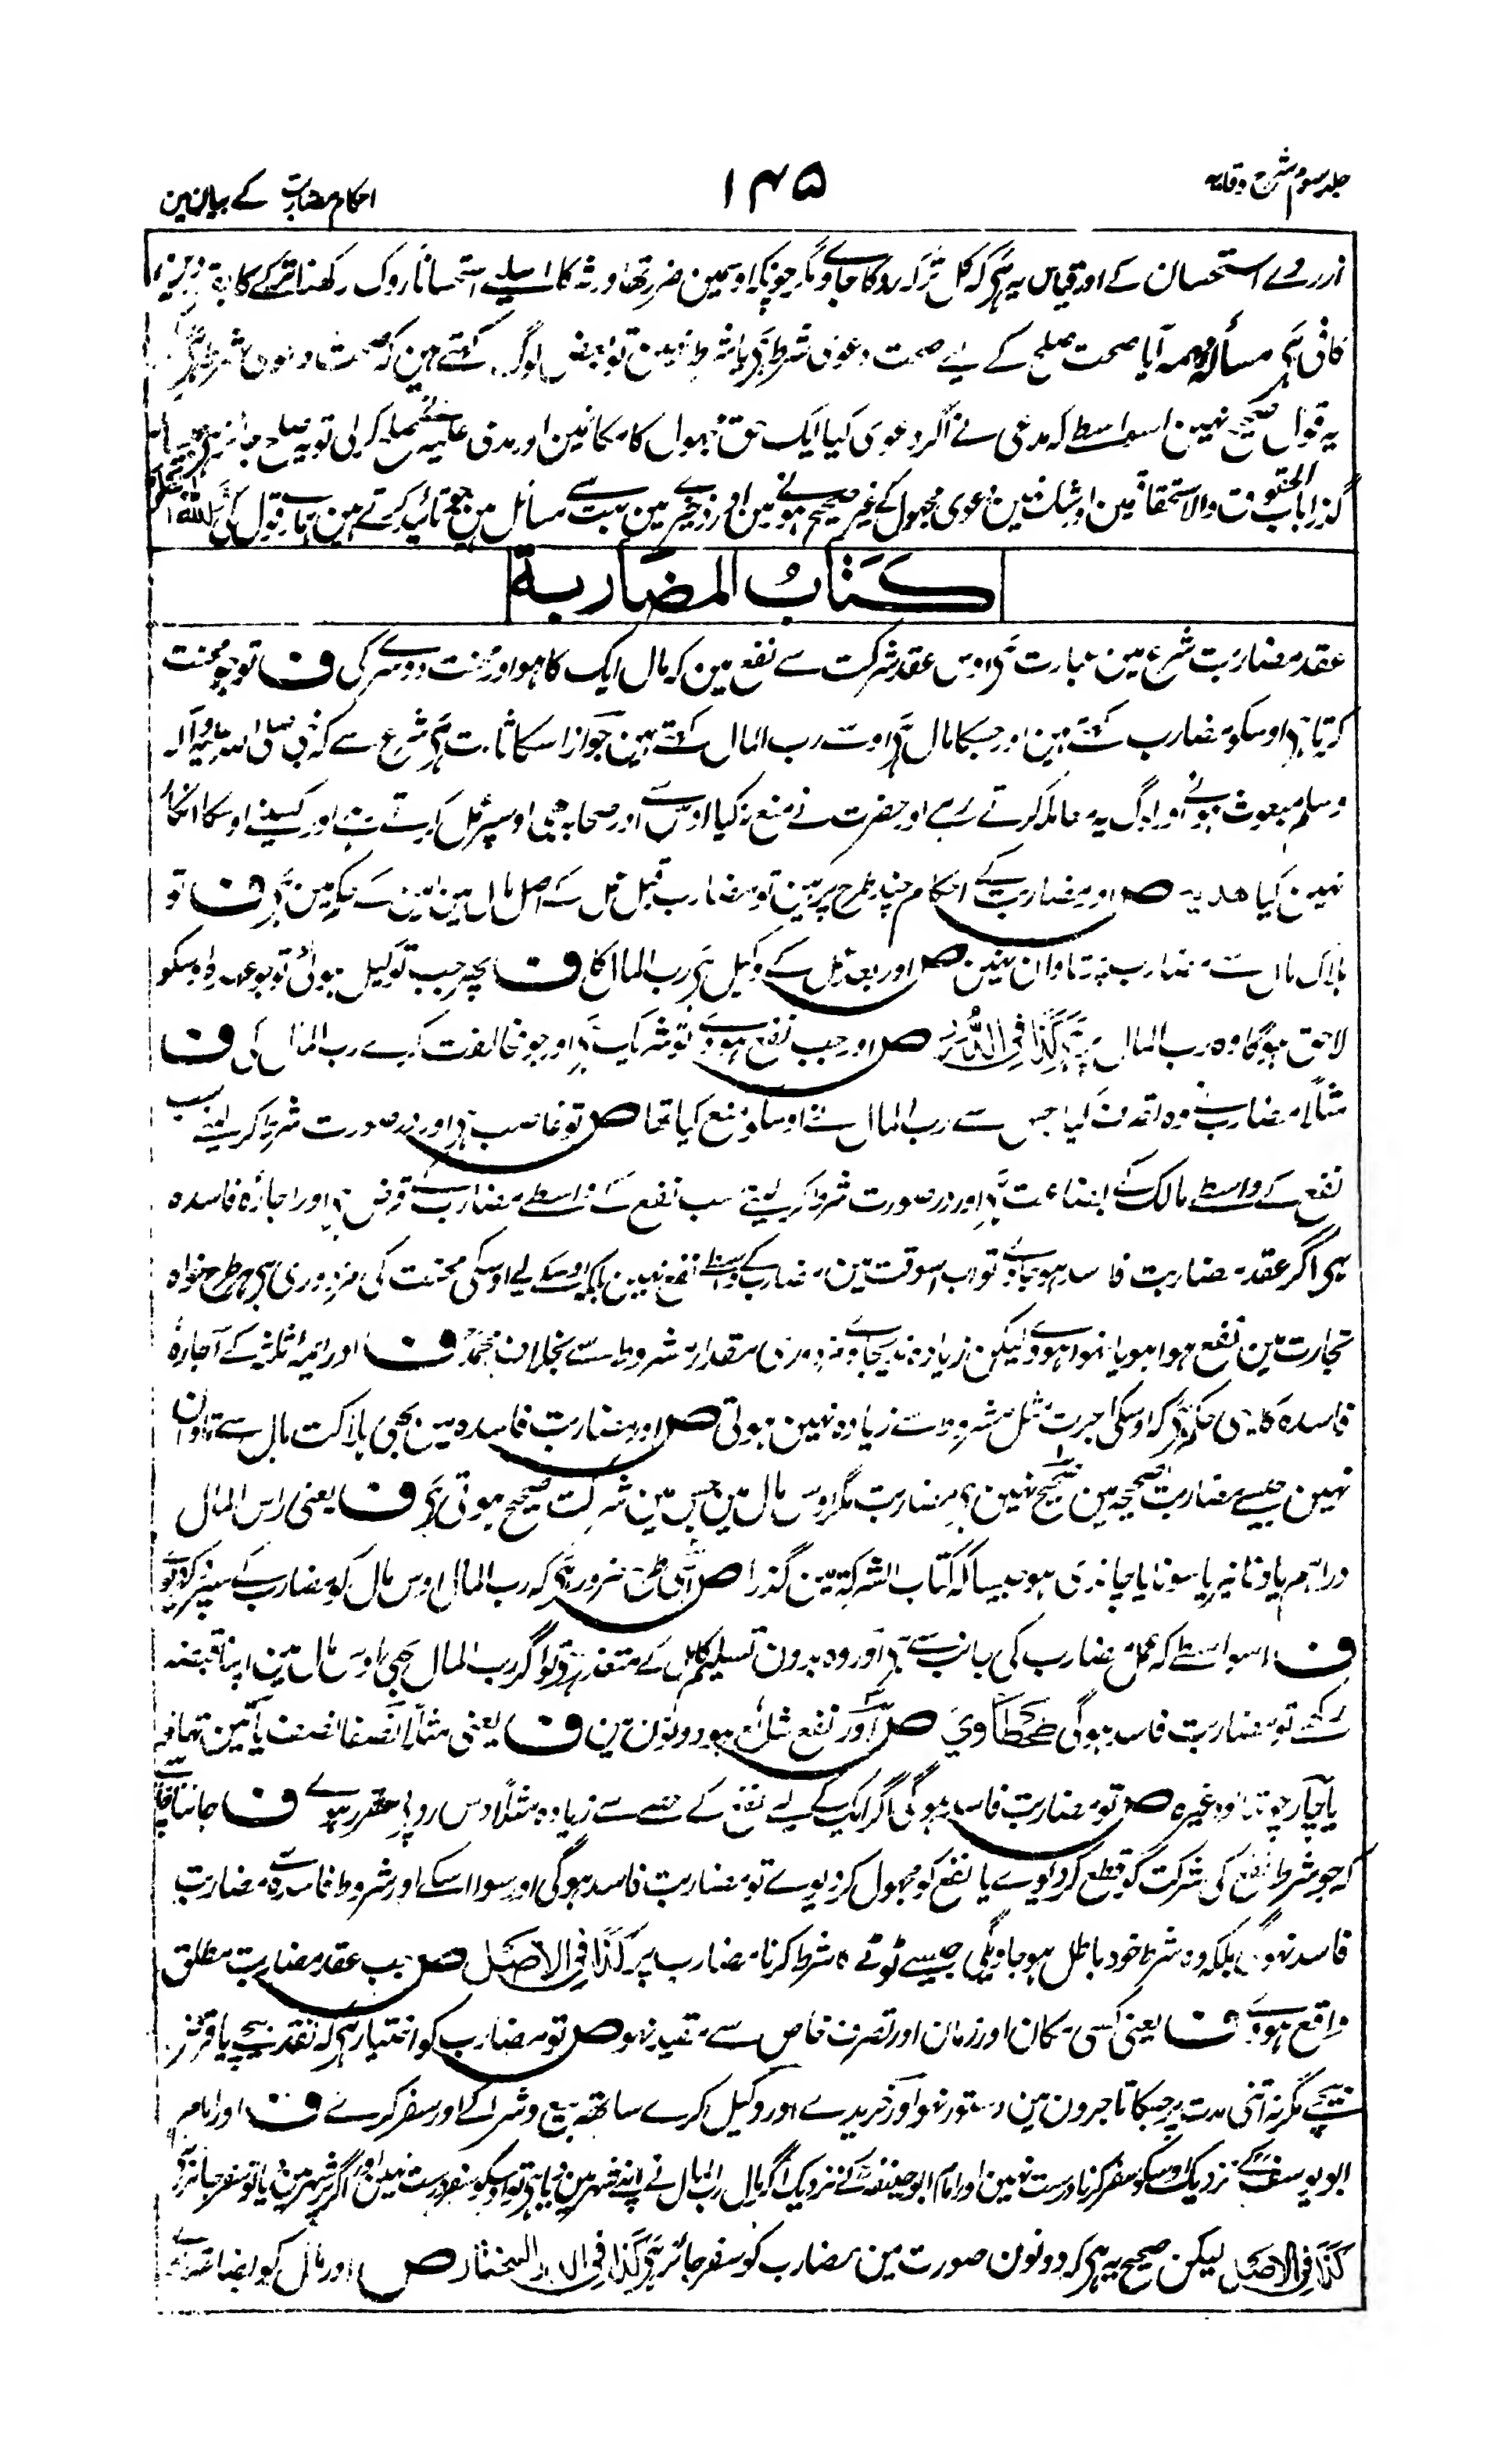 جلد سوم شرح وقایہ
۱۴۵
احکام مضاربت کے بیان مین
ازروے استحسان کے اور قیاس یہ ہی کہ کل ترکہ روکا جاوے مگر چونکہ اوسمین ضرر تھا ورثہ کا اسلیے استحسانا روک رکھنا ترکے کا بقدر دین
کافی ہی مسألہ مہمہ آیا صحت صلح کے لیے صحت دعویٰ شرط ہی یا شرط نہین تو بعض لوگ کہتے ہین کہ صحت دعویٰ شرط ہی
یہ قول صحیح نہین اسواسطے کہ مدعی نے اگر دعوی کیا ایک حق مجہول کا مکانمین اور مدعی علیہ نے صلح کرلی تو یہ صلح جائز ہی جیسا
گذرا باب الحقوق والاستحقاق مین اور شک نہین دعوی مجہول کے غیر صحیح ہونے مین اور ذخیرے مین بہت سے مسائل ہین جو تائید کرتے ہین ہمارے قول کی
کتاب المضاربة
عقد مضاربت شرع مین عبارت ہی اوس عقد شرکت سے نفع مین کہ مال ایک کا ہو اور محنت دوسرے کی ف تو جو محنت
کرتا ہی اوسکو مضارب کہتے ہین اور جسکا مال ہی اوسے رب المال کہتے ہین جواز اسکا ثابت ہی شرع سے کہ نبی صلی اللہ علیہ وآلہ
وسلم مبعوث ہوئے اور لوگ یہ معاملہ کرتے رہے اور حضرت نے منع نہ کیا اوس سے اور صحابہ بھی اوسپر عمل کرتے رہے اور کسینے اوسکا انکار
نہین کیا ھدایہ ص اور مضاربت کے احکام چند طرح پر ہین تو مضارب قبل عمل کے اصل مال مین امین ہے لیکن ف تو
ہلاک مال سے مضارب پر تاوان نہین ص اور بعد عمل کے وکیل ہی رب المال کا ف پھر جب توکیل ہوئی تو جو عہدہ اوسکو
لاحق ہوگا وہ رب المال پر ہی کذا فی الدرر ص اور جب نفع ہووے تو شریک ہی اور جو مخالفت کرے رب المال کی ف
مثلا مضارب نے وہ تصرف کیا جس سے رب المال نے اوسکو منع کیا تھا ص تو غاصب ہی اور درصورت شرط کرلینے سب
نفع کے واسطے مالک کے بضاعت ہی اور درصورت شرط کرلینے سب نفع کے واسطے مضارب کے قرض ہی اور اجارہ فاسدہ
ہی اگر عقد مضاربت فاسد ہوجاوے تو اب اسوقت مین مضارب کے واسطے نفع نہین بلکہ اوسکے لیے اوسکی محنت کی مزدوری ہی ہر طرح خواہ
تجارت مین نفع ہوا ہو یا نہوا ہو ولیکن زیادہ ندیجاوے مزدوری مقدار مشروط سے بخلاف محمد ف اور ائمہ ثلثہ کے اجارہ
فاسدہ کا یہی حکم ہی کہ اوسکی اجرت مثل مشروط سے زیادہ نہین ہوتی ص اور مضاربت فاسدہ مین بھی ہلاکت مال سے تاوان
نہین جیسے مضاربت صحیحہ مین صحیح نہین ہی مضاربت مگر اوس مال مین جس مین شرکت صحیح ہوتی ہی ف یعنی راس المال
دراہم یا دنانیر یا سونا یا چاندی ہو جیسا کہ کتاب الشرکة مین گذرا ص اسی طرح ضرور ہی کہ رب المال اوس مال کو مضارب کے سپرد کردیوے
ف اسواسطے کہ عمل مضارب کی جانب سے ہی اور وہ بدون تسلیم کامل کے متعذر ہی تو اگر رب المال بھی اوس مال مین اپنا قبضہ
رکھے تو مضاربت فاسد ہوگی طحطاوي ص اور نفع شائع ہو دونون مین ف یعنی مثلا نصفا نصف یا تین تہائی
یا چار چوتھائی وغیرہ ص تو مضاربت فاسد ہوگی اگر ایک کے لیے نفع کے حصے سے زیادہ مثلا دس روپی مقرر ہوے ف جاننا چاہیے
کہ جو شرط نفع کی شرکت کو قطع کردیوے یا نفع کو مجہول کردیوے تو مضاربت فاسد ہوگی اور سوا اسکے اور شروط فاسدہ سے مضاربت
فاسد نہوگی بلکہ وہ شرط خود باطل ہوجاویگی جیسے ٹوٹے کا شرط کرنا مضارب پر کذا فی الاصل ص جب عقد مضاربت مطلق
واقع ہووے ف یعنی کسی مکان اور زمان اور تصرف خاص سے مقید نہو ص تو مضارب کو اختیار ہی کہ نقد بیچے یا قرض
بیچے مگر نہ اتنی مدت پر جسکا تاجرون مین دستور نہو اور خریدے اور وکیل کرے ساتھ بیع وشرا کے اور سفر کرے ف اور امام
ابو یوسف کے نزدیک اوسکو سفر کرنا درست نہین اور امام ابو حنیفہ کے نزدیک اگر مال رب المال نے اپنے شہر مین دیا ہی تو اوسکو سفر درست نہین اور اگر غیر شہر مین دیا تو سفر جائز ہی
کذا فی الاصل لیکن صحیح یہ ہی کہ دونون صورت مین مضارب کو سفر جائز ہی کذا فی الدر المختار ص اور مال کو بضاعت